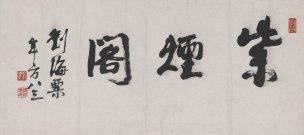 紫煙閣
劉海粟
年方八八